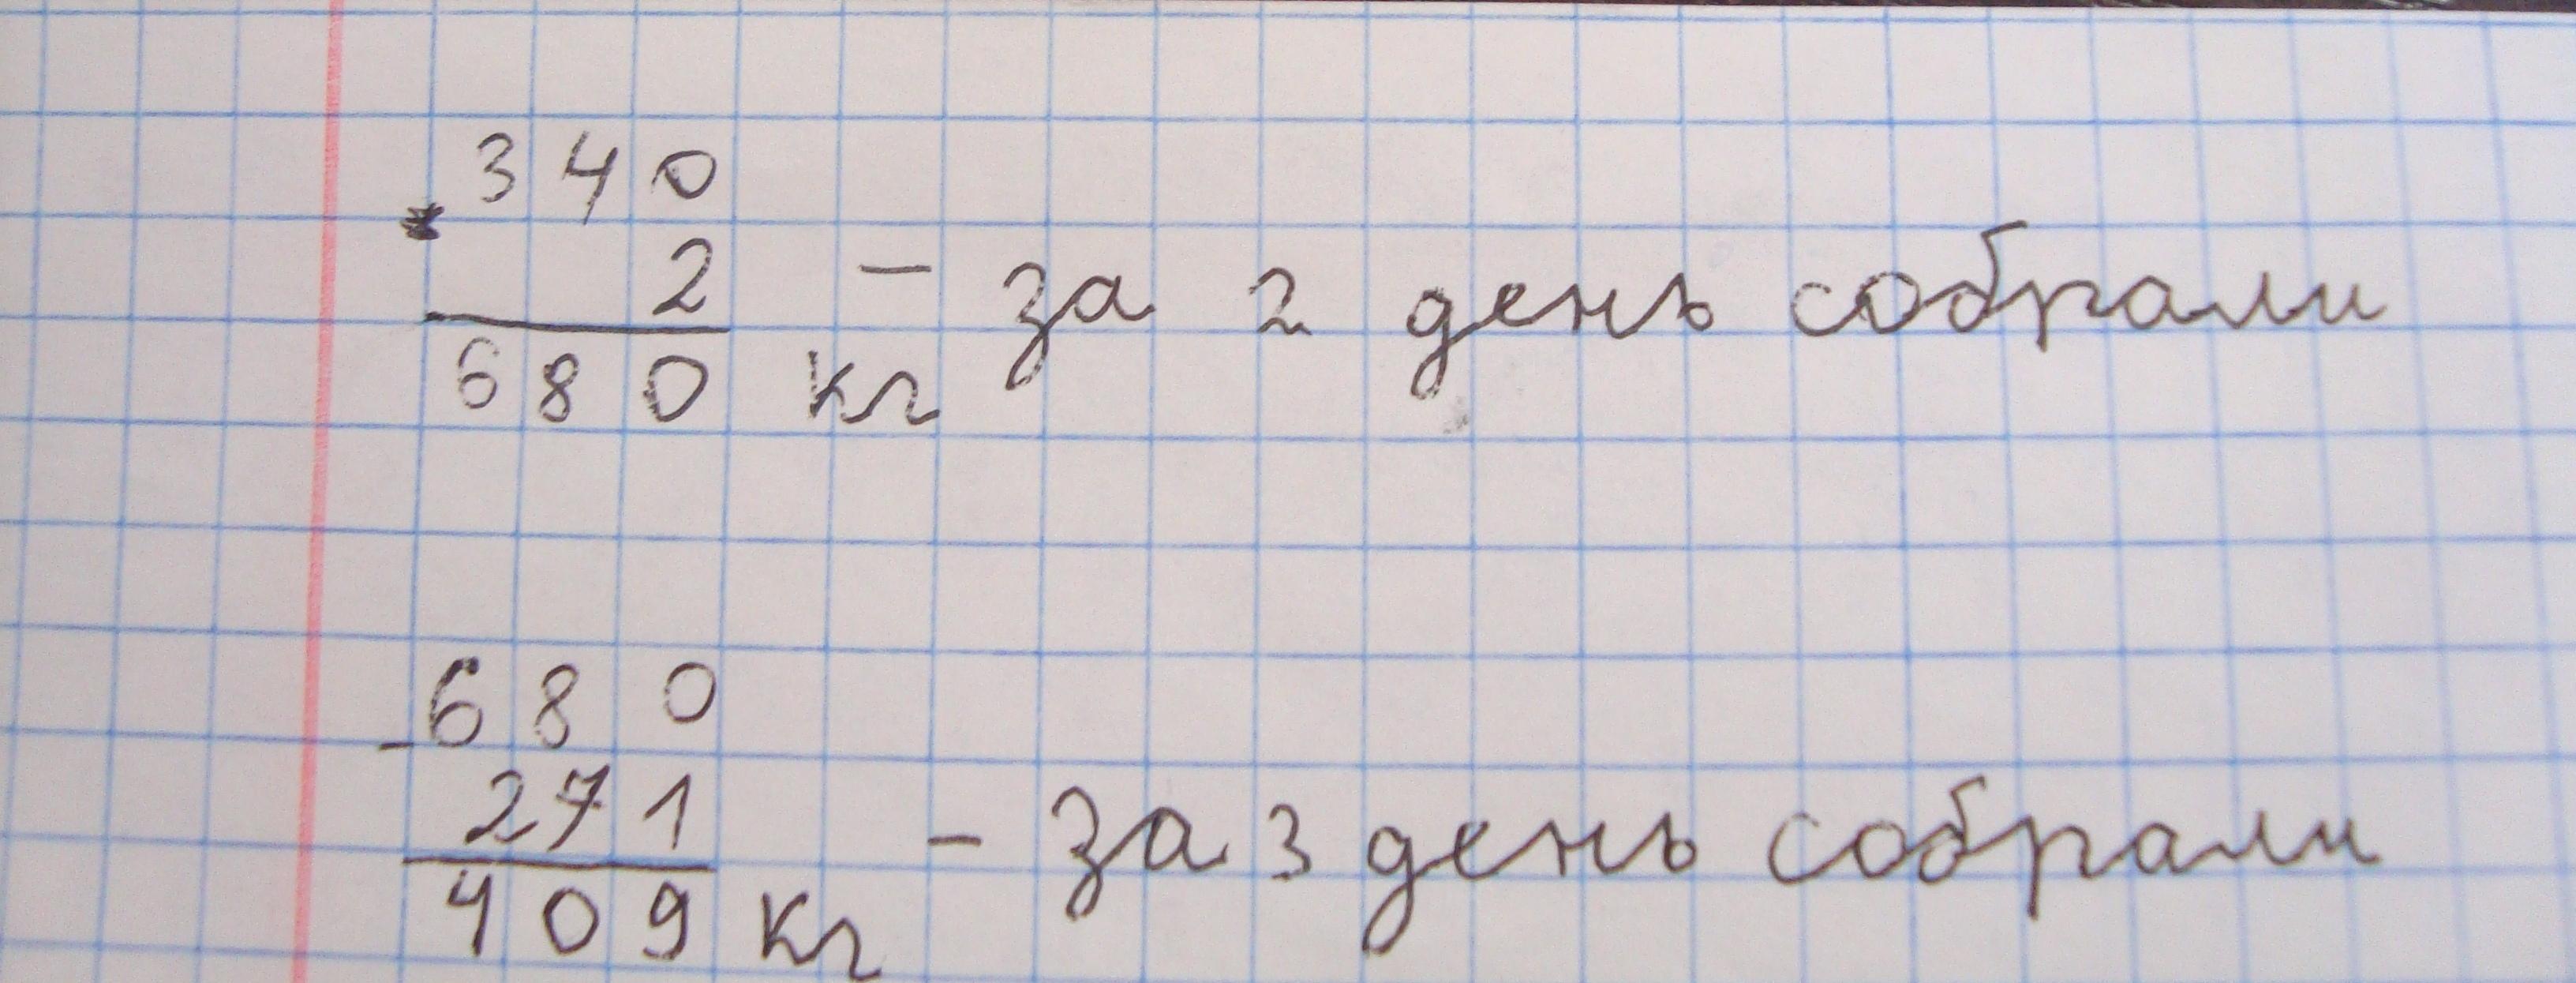 340
·
2 - за 2 день собрали
680 кг
680
-
271 - за 3 день собрали
409 кг